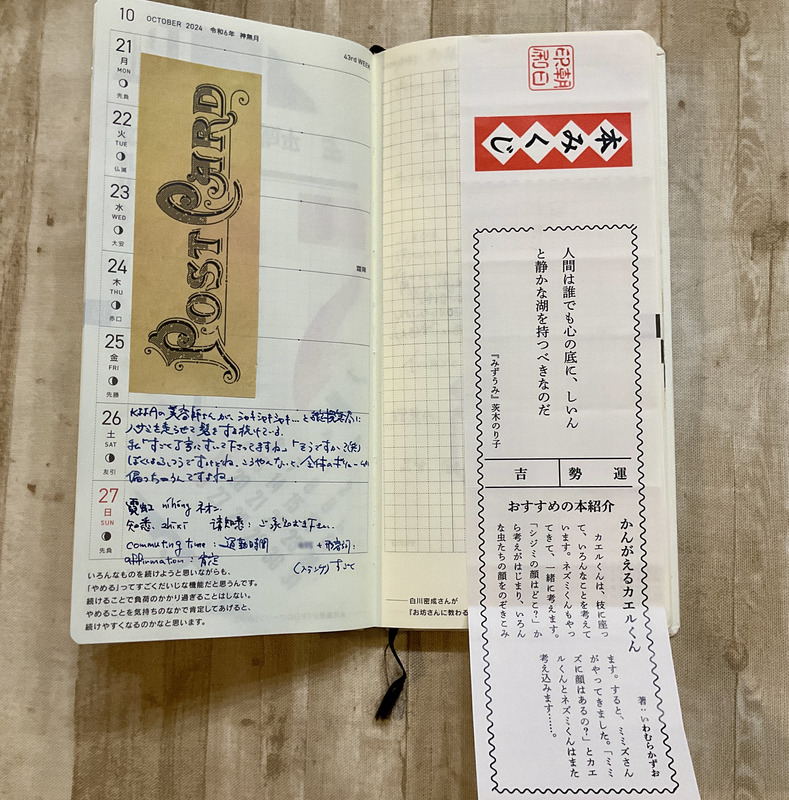 10 OCTOBER 2024 令和6年 神無月
43rd WEEK
21
月
MON
先負
22
火
TUE
仏滅
23
水
WED
大安
24
木
THU
赤口
霜降
25
金
FRI
先勝
26
土
SAT
友引
27
日
SUN
先負
POST CARD
ハサミを走らせて髪をすき続けている。
私「すごく丁寧にすいて下さってますね」「そうですか?(笑)
偏っちゃうんですよね」
霓虹 níhóng ネオン
知悉 zhīxī 请知悉:ご承知おき下さい
commuting time:通勤時間
affirmation:肯定
いろんなものを続けようと思いながらも、
「やめる」ってすごくだいじな機能だと思うんです。
続けることで負荷のかかり過ぎることはしない。
やめることを気持ちのなかで肯定してあげると、
続けやすくなるのかなと思います。
——白川密成さんが
『お坊さんに教わる
本みくじ
人間は誰でも心の底に、しいん
と静かな湖を持つべきなのだ
『みずうみ』茨木のり子
運勢 吉
おすすめの本紹介
かんがえるカエルくん
著:いわむらかずお
カエルくんは、枝に座っ
て、いろんなことを考えて
います。ネズミくんもやっ
てきて、一緒に考えます。
「シジミの顔はどこ?」か
ら考えがはじまり、いろん
な虫たちの顔をのぞきこみ
ます。すると、ミミズさん
がやってきました。「ミミ
ズに顔はあるの?」とカエ
ルくんとネズミくんはまた
考え込みます……。